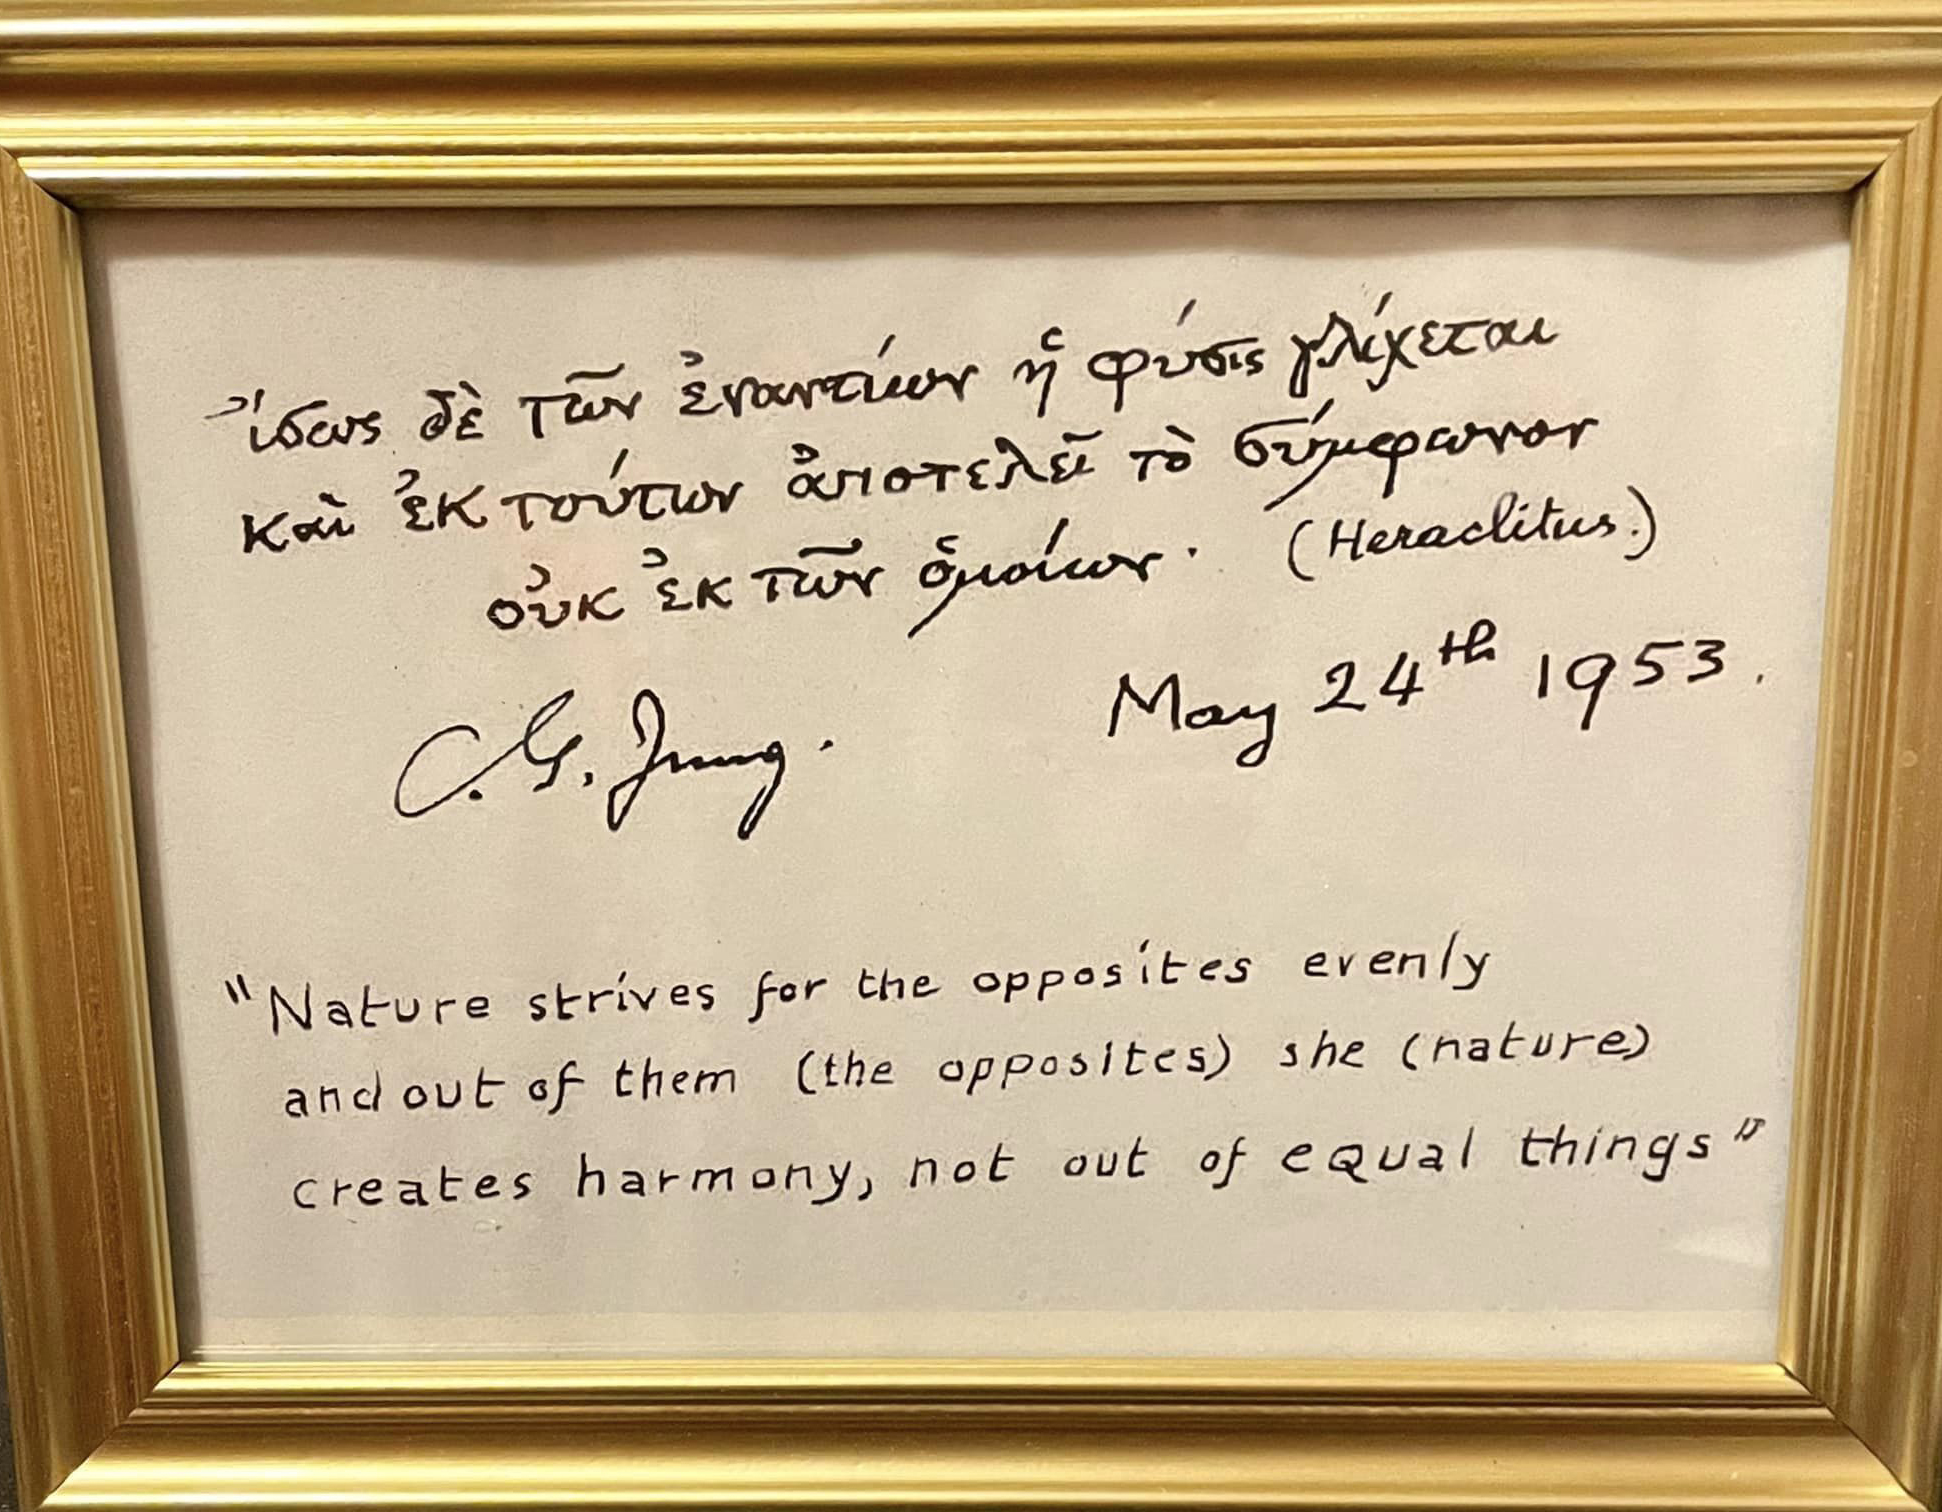 "ἴσως δὲ τῶν ἐναντίων ἡ φύσις γλίχεται
καὶ ἐκ τούτων ἀποτελεῖ τὸ σύμφωνον
οὐκ ἐκ τῶν ὁμοίων. (Heraclitus.)
C. G. Jung. May 24th 1953.
"Nature strives for the opposites evenly
and out of them (the opposites) she (nature)
creates harmony, not out of equal things"